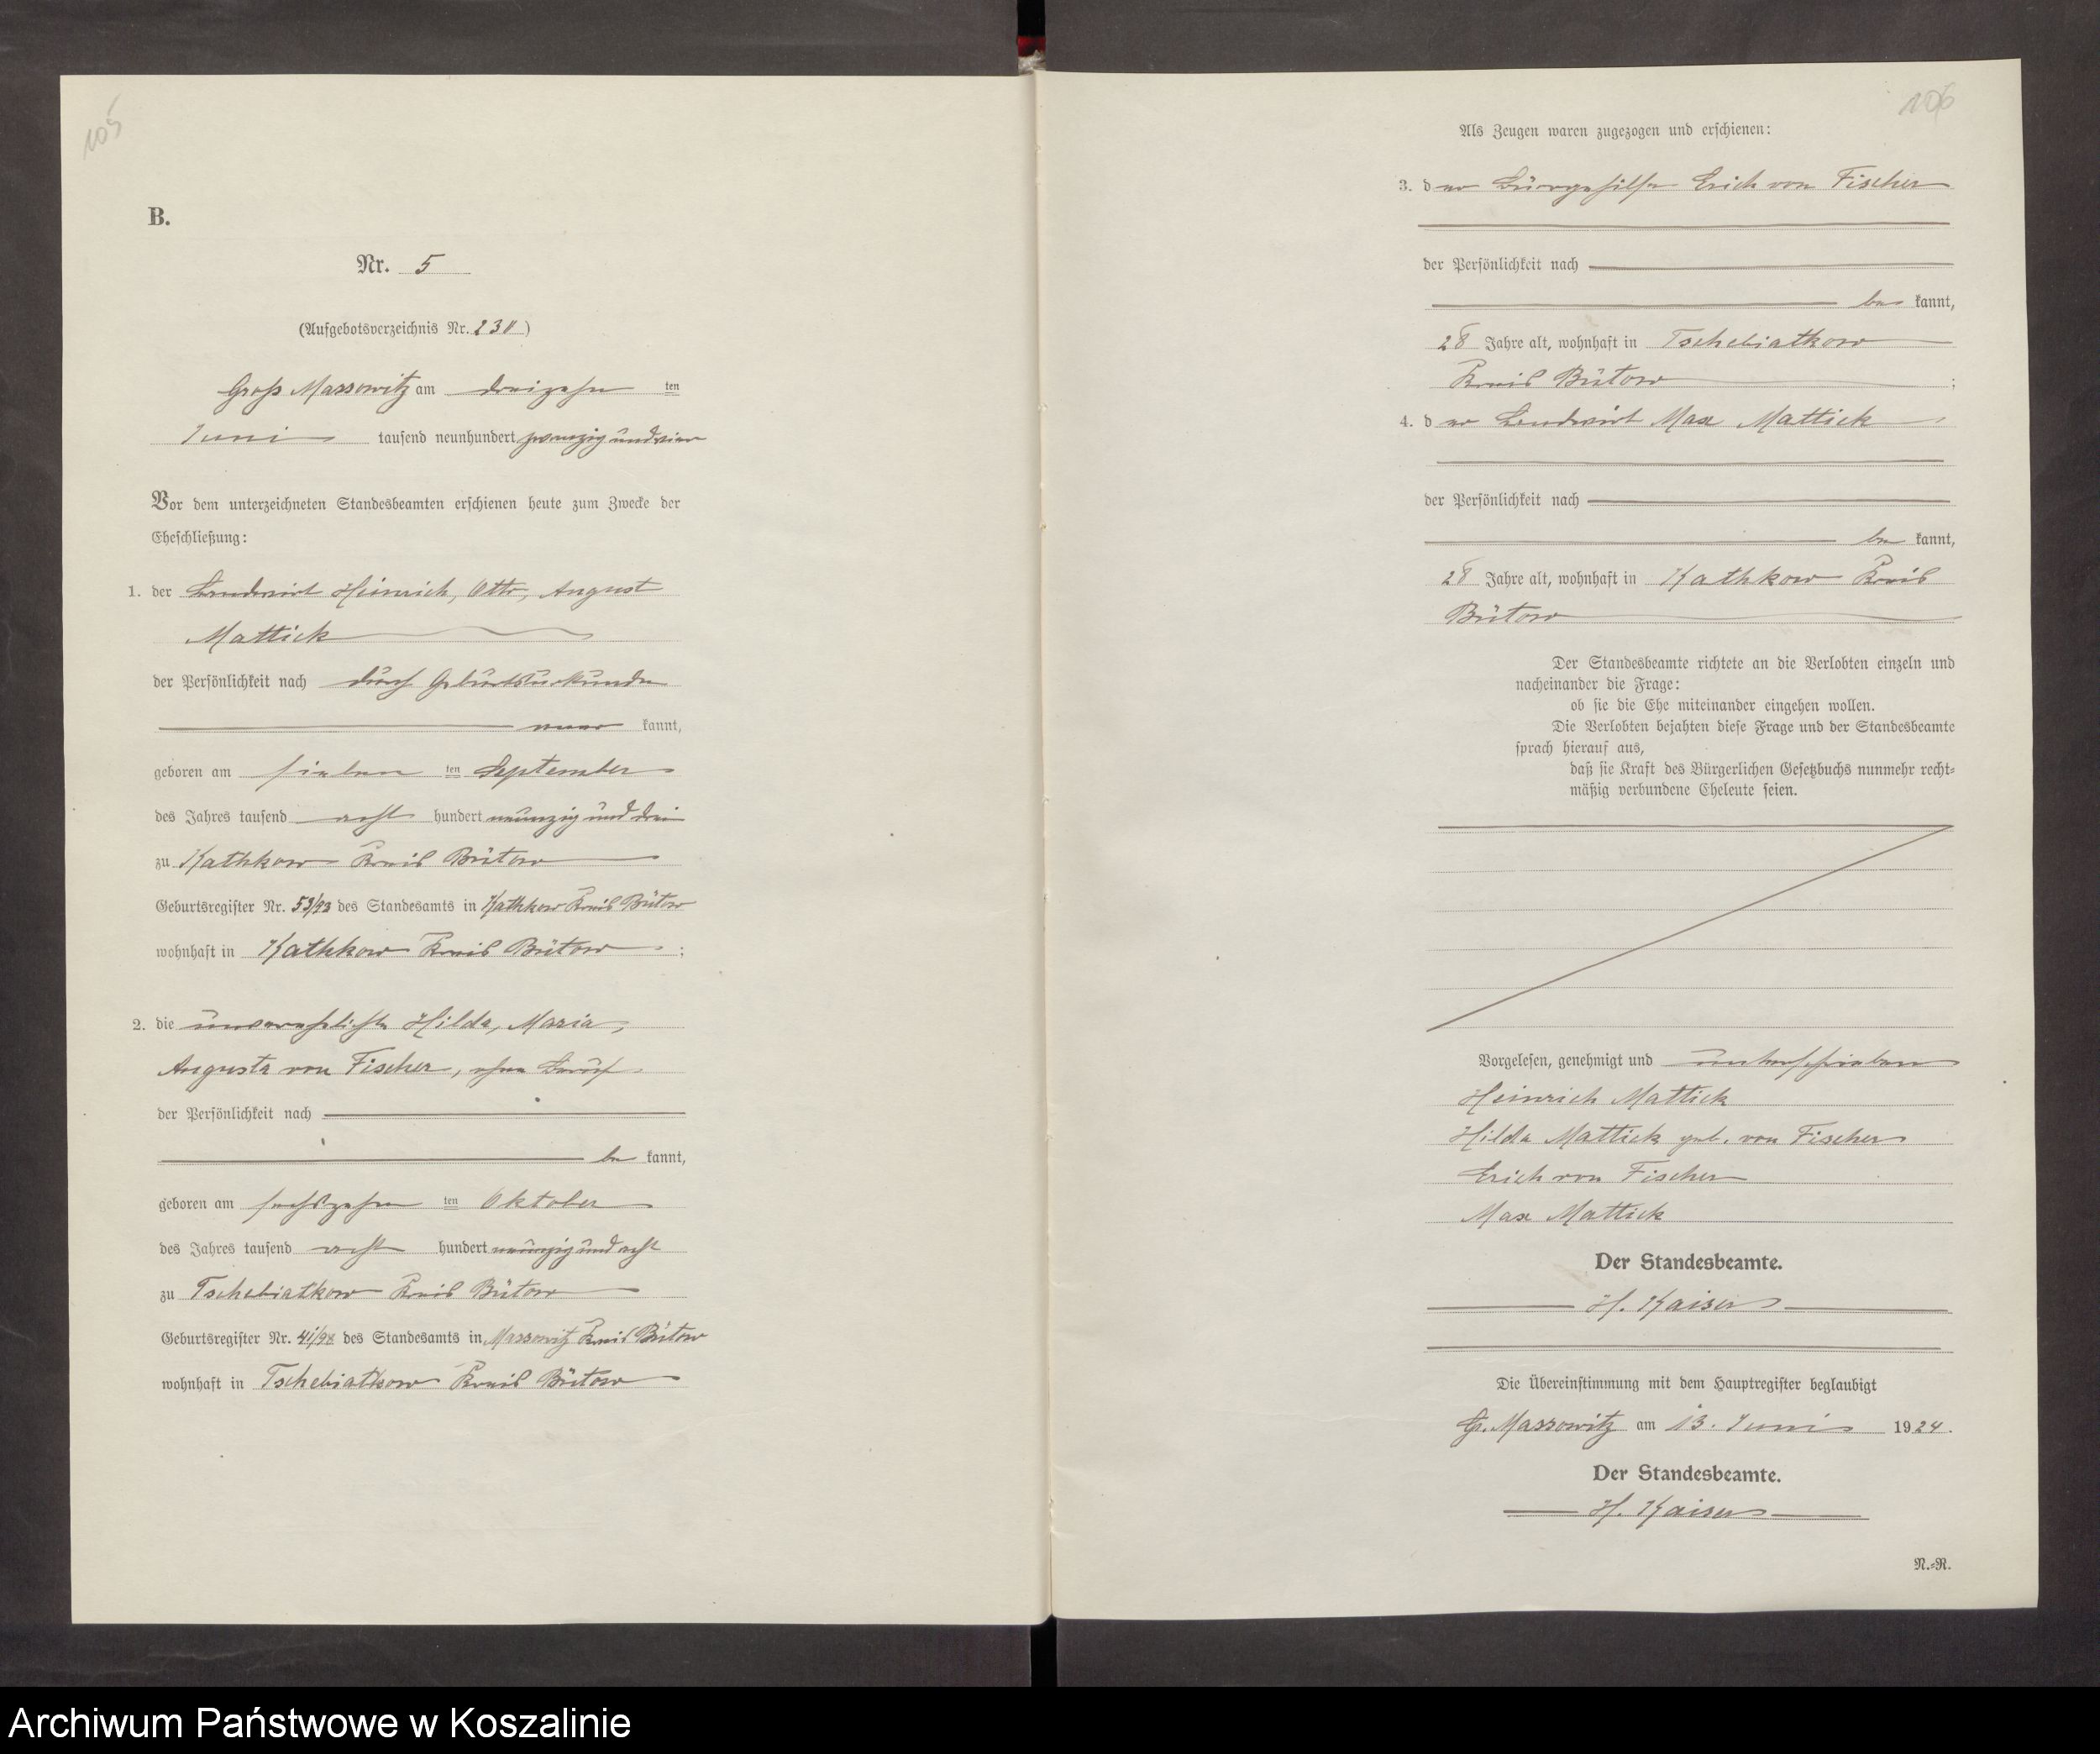 105
B.
Nr. 5
(Aufgebotsverzeichnis Nr. 230)
Groß Massowitz am dreizehn ten
Juni tausend neunhundert zwanzig und vier
Vor dem unterzeichneten Standesbeamten erschienen heute zum Zwecke der
Eheschließung:
1. der Landwirt Heinrich, Otto, August
Mattick
der Persönlichkeit nach durch Geburtsurkunde
aner kannt,
geboren am sieben ten September
des Jahres tausend acht hundert neunzig und drei
zu Kathkow Kreis Bütow
Geburtsregister Nr. 53/93 des Standesamts in Kathkow Kreis Bütow
wohnhaft in Kathkow Kreis Bütow ;
2. die unverehelichte Hilda, Maria,
Augusta von Fischer, ohne Beruf
der Persönlichkeit nach
be kannt,
geboren am sechszehn ten Oktober
des Jahres tausend acht hundert neunzig und acht
zu Tschebiatkow Kreis Bütow
Geburtsregister Nr. 41/98 des Standesamts in Massowitz Kreis Bütow
wohnhaft in Tschebiatkow Kreis Bütow
106
Als Zeugen waren zugezogen und erschienen:
3. der Bürogehilfe Erich von Fischer
der Persönlichkeit nach
be kannt,
28 Jahre alt, wohnhaft in Tschebiatkow
Kreis Bütow ;
4. der Landwirt Max Mattick
der Persönlichkeit nach
be kannt,
28 Jahre alt, wohnhaft in Kathkow Kreis
Bütow
Der Standesbeamte richtete an die Verlobten einzeln und
nacheinander die Frage:
ob sie die Ehe miteinander eingehen wollen.
Die Verlobten bejahten diese Frage und der Standesbeamte
sprach hierauf aus,
daß sie Kraft des Bürgerlichen Gesetzbuchs nunmehr recht-
mäßig verbundene Eheleute seien.
Vorgelesen, genehmigt und unterschrieben
Heinrich Mattick
Hilda Mattick geb. von Fischer
Erich von Fischer
Max Mattick
Der Standesbeamte.
H. Kaiser
Die Übereinstimmung mit dem Hauptregister beglaubigt
Gr. Massowitz am 13. Juni 1924.
Der Standesbeamte.
H. Kaiser
N.-R.
Archiwum Państwowe w Koszalinie